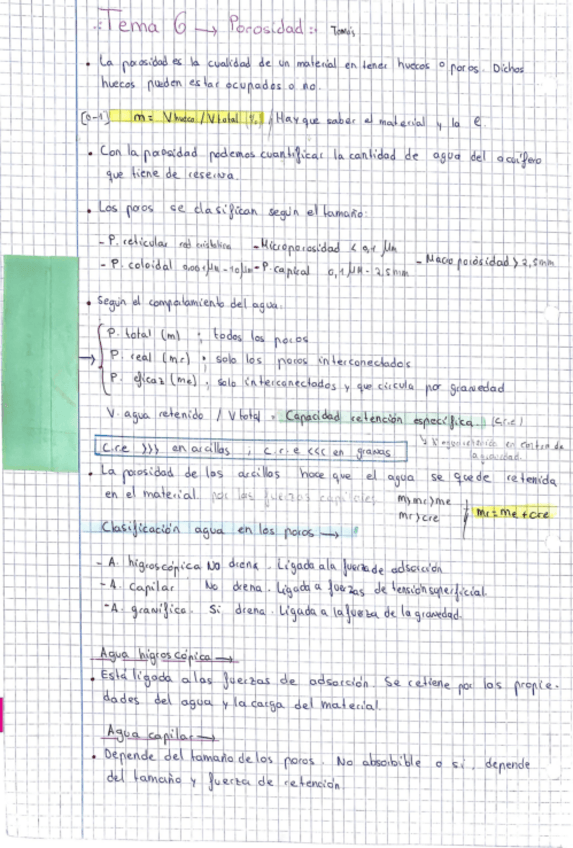 Tema 6 → Porosidad:
• La porosidad es la cualidad de un material en tener huecos o poros. Dichos
huecos pueden estar ocupados o no.
[0-1] m = Vhueco / Vtotal (%) / Hay que saber el material y la e.
• Con la porosidad podemos cuantificar la cantidad de agua del acuífero
que tiene de reserva.
• Los poros se clasifican según el tamaño:
- P. reticular red cristalina - Microporosidad < 0,1 μm
- Macroporosidad > 2,5mm
- P. coloidal 0,001μm - 10μm - P. capilar 0,1 μm - 2,5mm
• Según el comportamiento del agua:
P. total (m) : todos los poros
→ P. real (mr) : solo los poros interconectados
P. eficaz (me) : solo interconectados y que circula por gravedad
V. agua retenido / Vtotal = Capacidad retención específica. (c.r.e)
↳ V agua retenido en contra de
la gravedad.
C.re >>> en arcillas ; c.r.e <<< en gravas
• La porosidad de las arcillas hace que el agua se quede retenida
en el material por las fuerzas capilares m>mr>me
mr>cre mr=me+cre
Clasificación agua en los poros →
- A. higroscópica No drena. Ligada a la fuerza de adsorción
- A. capilar No drena. Ligada a fuerzas de tensión superficial.
- A. gravífica. Si drena. Ligada a la fuerza de la gravedad.
Agua higroscópica →
• Está ligada a las fuerzas de adsorción. Se retiene por las propie-
dades del agua y la carga del material.
Agua capilar →
• Depende del tamaño de los poros. No absorbible o si, depende
del tamaño y fuerza de retención